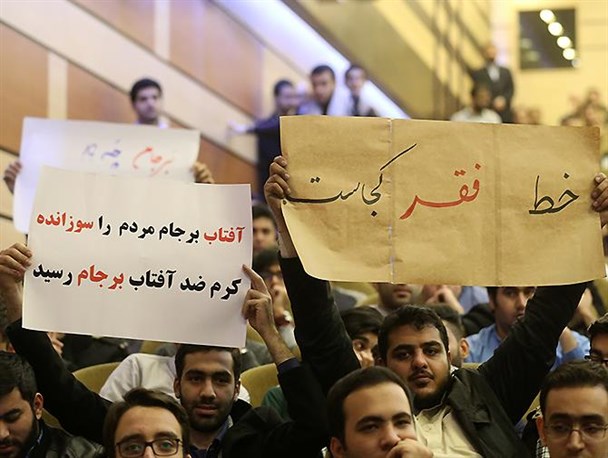 خط فقر کجاست
آفتاب برجام مردم را سوزانده
کرم ضد آفتاب برجام رسید
برجام